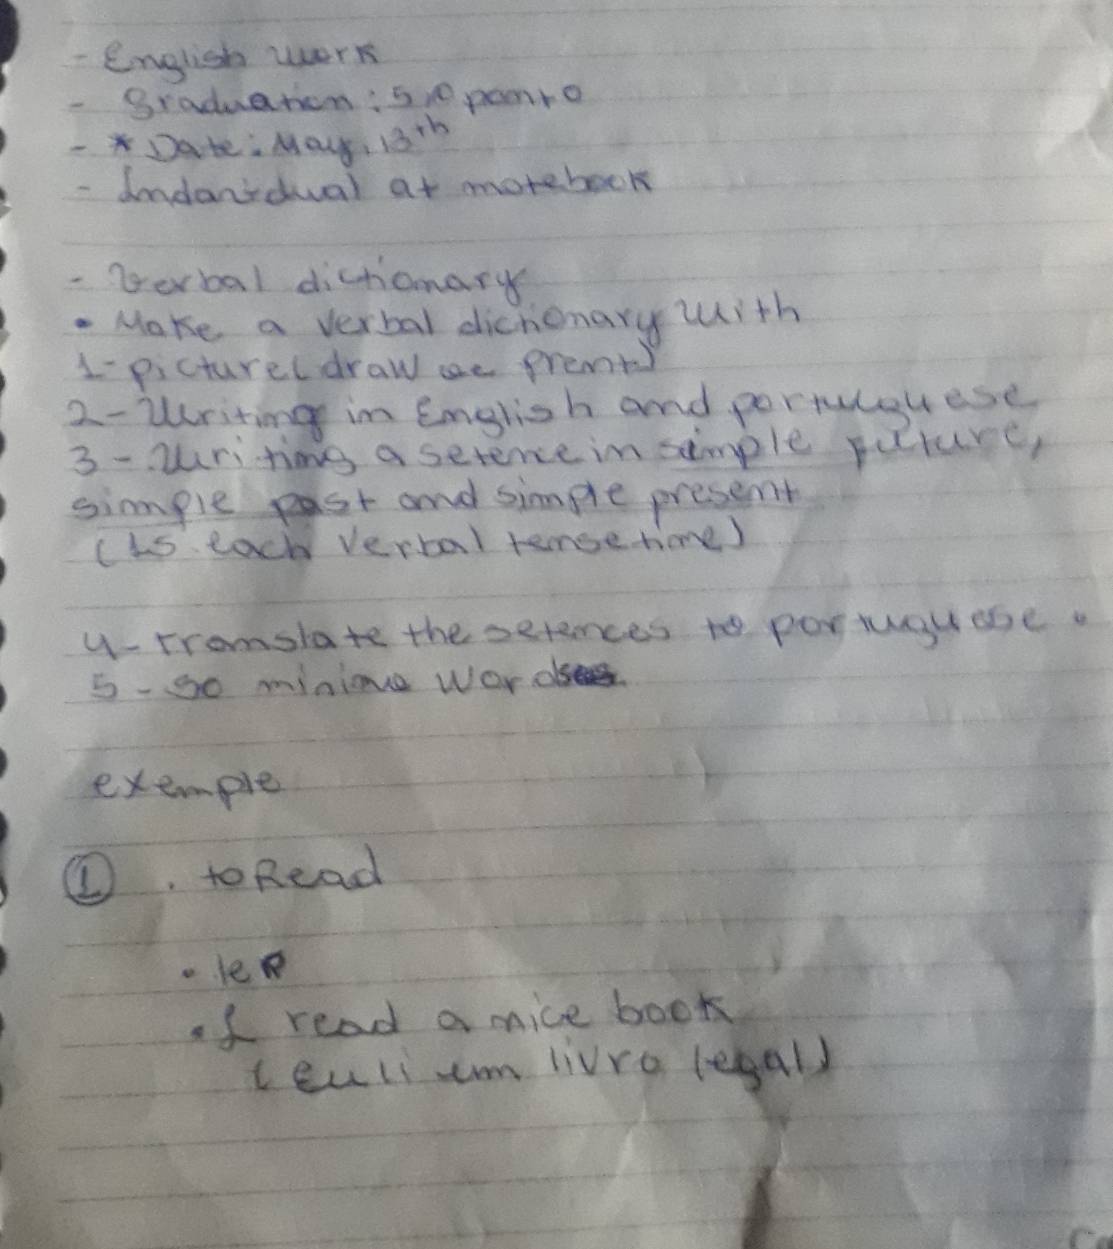 - English work
- Graduation: 5,0 ponto
- * Date: May, 13th
- Indavidual at notebook
- Verbal dictionary
• Make a verbal dicionary with
1- picture(draw or prent)
2- Writing in English and portuguese
3- Writing a setence in simple future,
simple past and simple present
(15 each verbal tense time)
4- translate the setences to portuguese.
5- 50 minimo words
exemple
① . to Read
• leR
• I read a nice book
(eu li um livro legal)